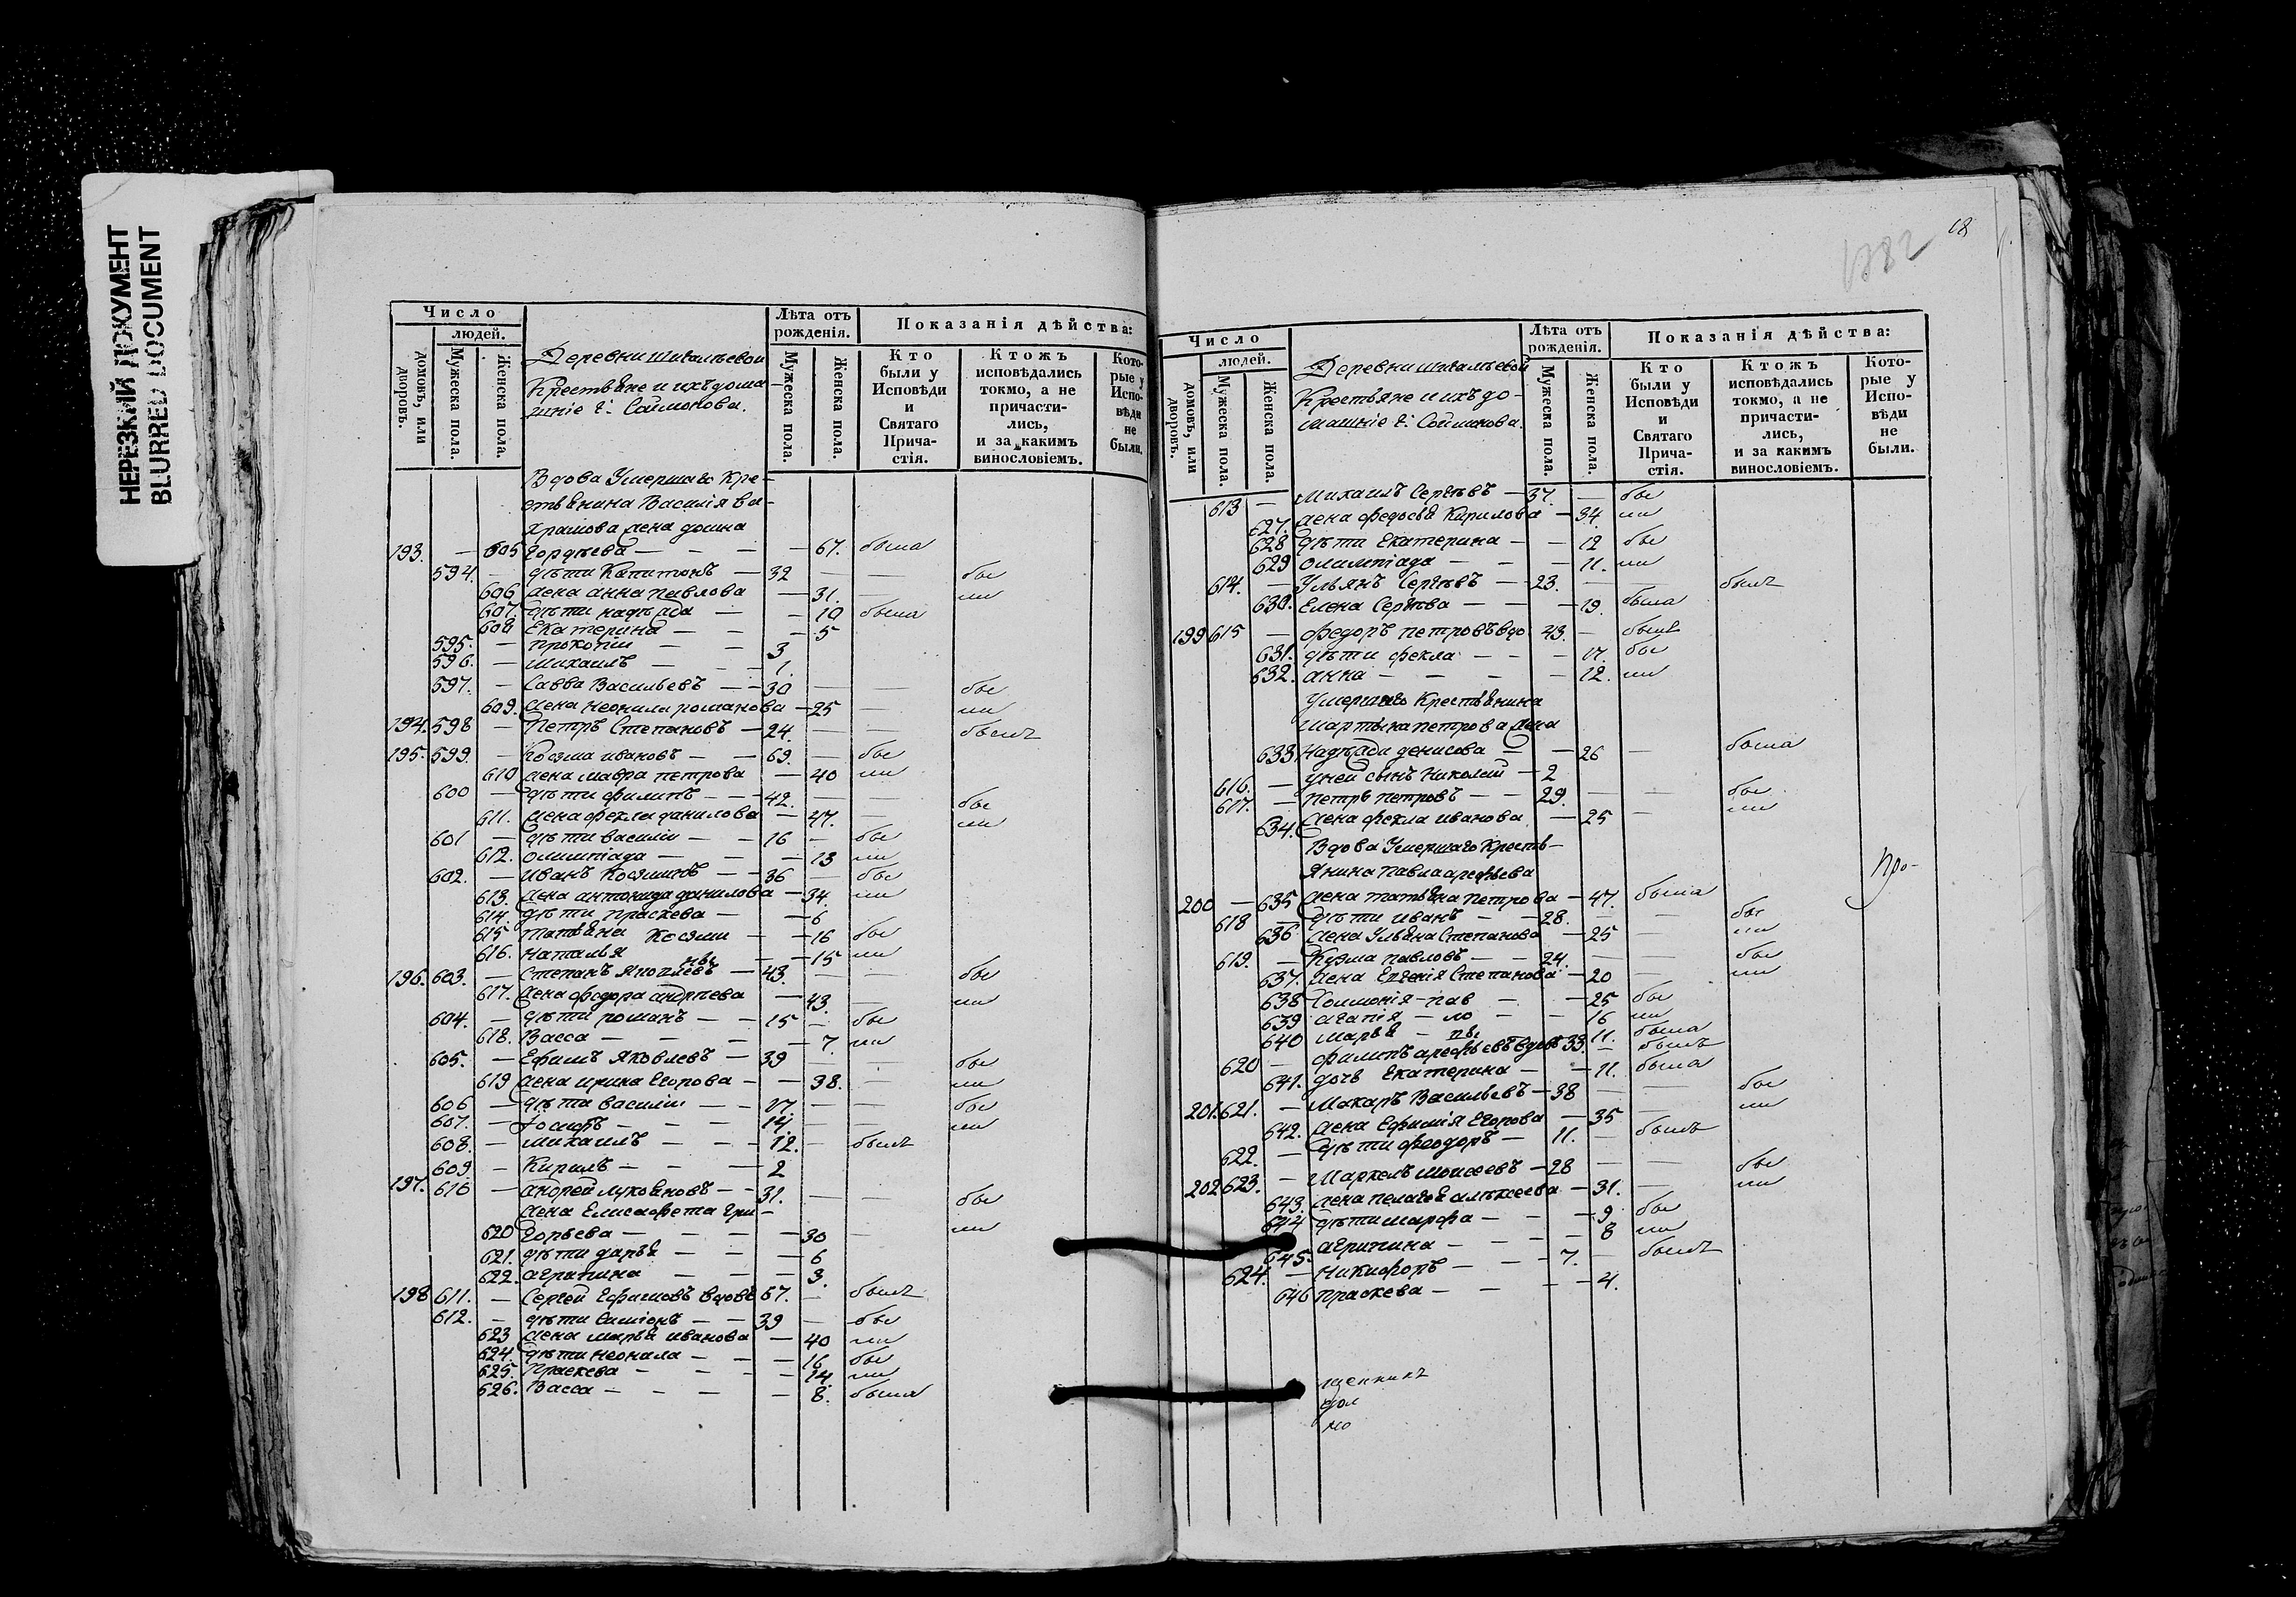 НЕРЕЗКИЙ ДОКУМЕНТ
BLURRED DOCUMENT
Число
людей.
домовъ, или дворовъ.
Мужеска пола.
Женска пола.
Деревни
Крестьяне и ихъ дома
шніе г: Соймонова.
Лѣта отъ рожденія.
Мужеска пола.
Женска пола.
Показанія дѣйства:
Кто были у Исповѣди и Святаго Прича-стія.
Ктожъ исповѣдались токмо, а не причасти-лись, и за какимъ винословіемъ.
Кото-рые у Испо-вѣди не были.
Вдова Умершаго Кре-
стьянина Василія Ва-
жена домна
193. — 605 Гордѣева — — — 67. была
594. — дѣти Капитонъ — 32 — — бы
606 жена анна павлова — 31. — ли
607. дѣти надѣжда — — 10 была
608 Екатерина — — — 5
595. — прокопій — — 3
596. — михаилъ — — — 1.
597. — Савва Васильевъ — — 30 — — бы
609. жена неонила романова — 25 — ли
194. 598 — Петръ Степановъ — 24. — — былъ
195. 599. — Козма ивановъ — — 69. — бы
610 жена мавра петрова — 40 ли
600 — дѣти филипъ — — 42. — — бы
611. жена фекла данилова — 47. — ли
601 — дѣти василій — — 16 — бы
612. олимпіада — — — 13 ли
602. — иванъ Козминъ — — 36 — бы
613. жена антонида данилова — 34. ли
614. дѣти праскева — — 6
615 татьяна Козми — — 16 бы
616. наталья ны — — 15 ли
196. 603. — Степанъ Яковлевъ — 43. — — бы
617. жена федора андреева — 43. — ли
604. — дѣти романъ — — 15 — бы
618. Васса — — — — 7. ли
605. — Ефимъ Яковлевъ — 39 — — бы
619 жена ирина Егорова — — 38. — ли
606 — дѣти василій — — 17. — — бы
607. — Іосифъ — — — 14. — — ли
608. — михаилъ — — — 12. — былъ
609 — Кирилъ — — — 2
197. 610 — андрей лукояновъ — — 31. — — бы
жена Елисафета Гри-
620 горьева — — — — 30 — ли
621. дѣти дарья — — — 6
622. агрипина — — — 3.
198 611. — Сергей Ефимовъ вдовъ 67. — былъ
612. — дѣти Симіонъ — — 39 — бы
623 жена марья иванова — 40 ли
624. дѣти неонила — — — 16 бы
625. Праскева — — — — 14. ли
626. Васса — — — — 8. была
18
1382
Число
людей.
домовъ, или дворовъ.
Мужеска пола.
Женска пола.
Деревни
Крестьяне и ихъ до-
машніе г: Соймонова.
Лѣта отъ рожденія.
Мужеска пола.
Женска пола.
Показанія дѣйства:
Кто были у Исповѣди и Святаго Прича-стія.
Ктожъ исповѣдались токмо, а не причасти-лись, и за какимъ винословіемъ.
Кото-рые у Испо-вѣди не были.
613 — Михаилъ Сергѣевъ — 37. — бы
627. жена федосья Кирилова — 34. ли
628 дѣти Екатерина — — 12 бы
629 олимпіада — — — 11. ли
614. — Ульянъ Сергѣевъ — 23. — — былъ
630. Елена Сергѣева — — — 19. была
199 615 — федоръ петровъ вдо 43. — былъ
631. дѣти фекла — — — 17. бы
632. анна — — — — 12. ли
Умершаго Крестьянина
мартына петрова жена
633 надѣжда денисова — — 26 — была
616. — у ней сынъ Николай — 2
617. — петръ петровъ — — 29. — — бы
634. жена фекла иванова — 25 — ли
Вдова Умершаго Кресть-
янина павла арефьева
200 — 635 жена татьяна петрова — 47. была
618 — дѣти иванъ — — 28. — — бы
636 жена Ульяна Степанова — 25 — ли
619. — Кузма павловъ — — 24. — — бы
637. жена Евгенія Степанова — 20 — ли
638 Соломонія пав — — 25 бы
639 агапія — ло — — 16 ли
640 марья — вы 11. была
620 — филипъ арефьевъ вдовъ 33. — былъ
641. дочь Екатерина — — 11. была
201. 621. — Макаръ Васильевъ — 38 — — бы
642. жена Ефимія Егорова — 35 — ли
622. — дѣти феодоръ — 11. — былъ
202 623. — Маркелъ моисеевъ — 28 — — бы
643. жена пелагея алѣксеева — 31. — ли
644 дѣти марфа — — — 9 бы
645. агрипина — — — 8 ли
624. — Никифоръ — — 7. — былъ
646 праскева — — — — 4.
Про-
щенникъ